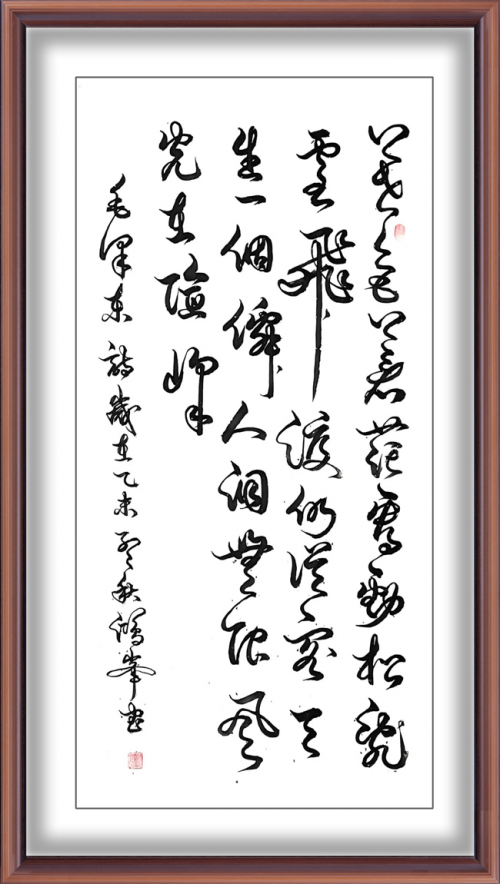 暮色蒼茫看勁松亂
雲飛渡仍從容天
生一個僊人洞無限風
光在險峰
毛澤東詩歲在乙未孟秋鴻峯書